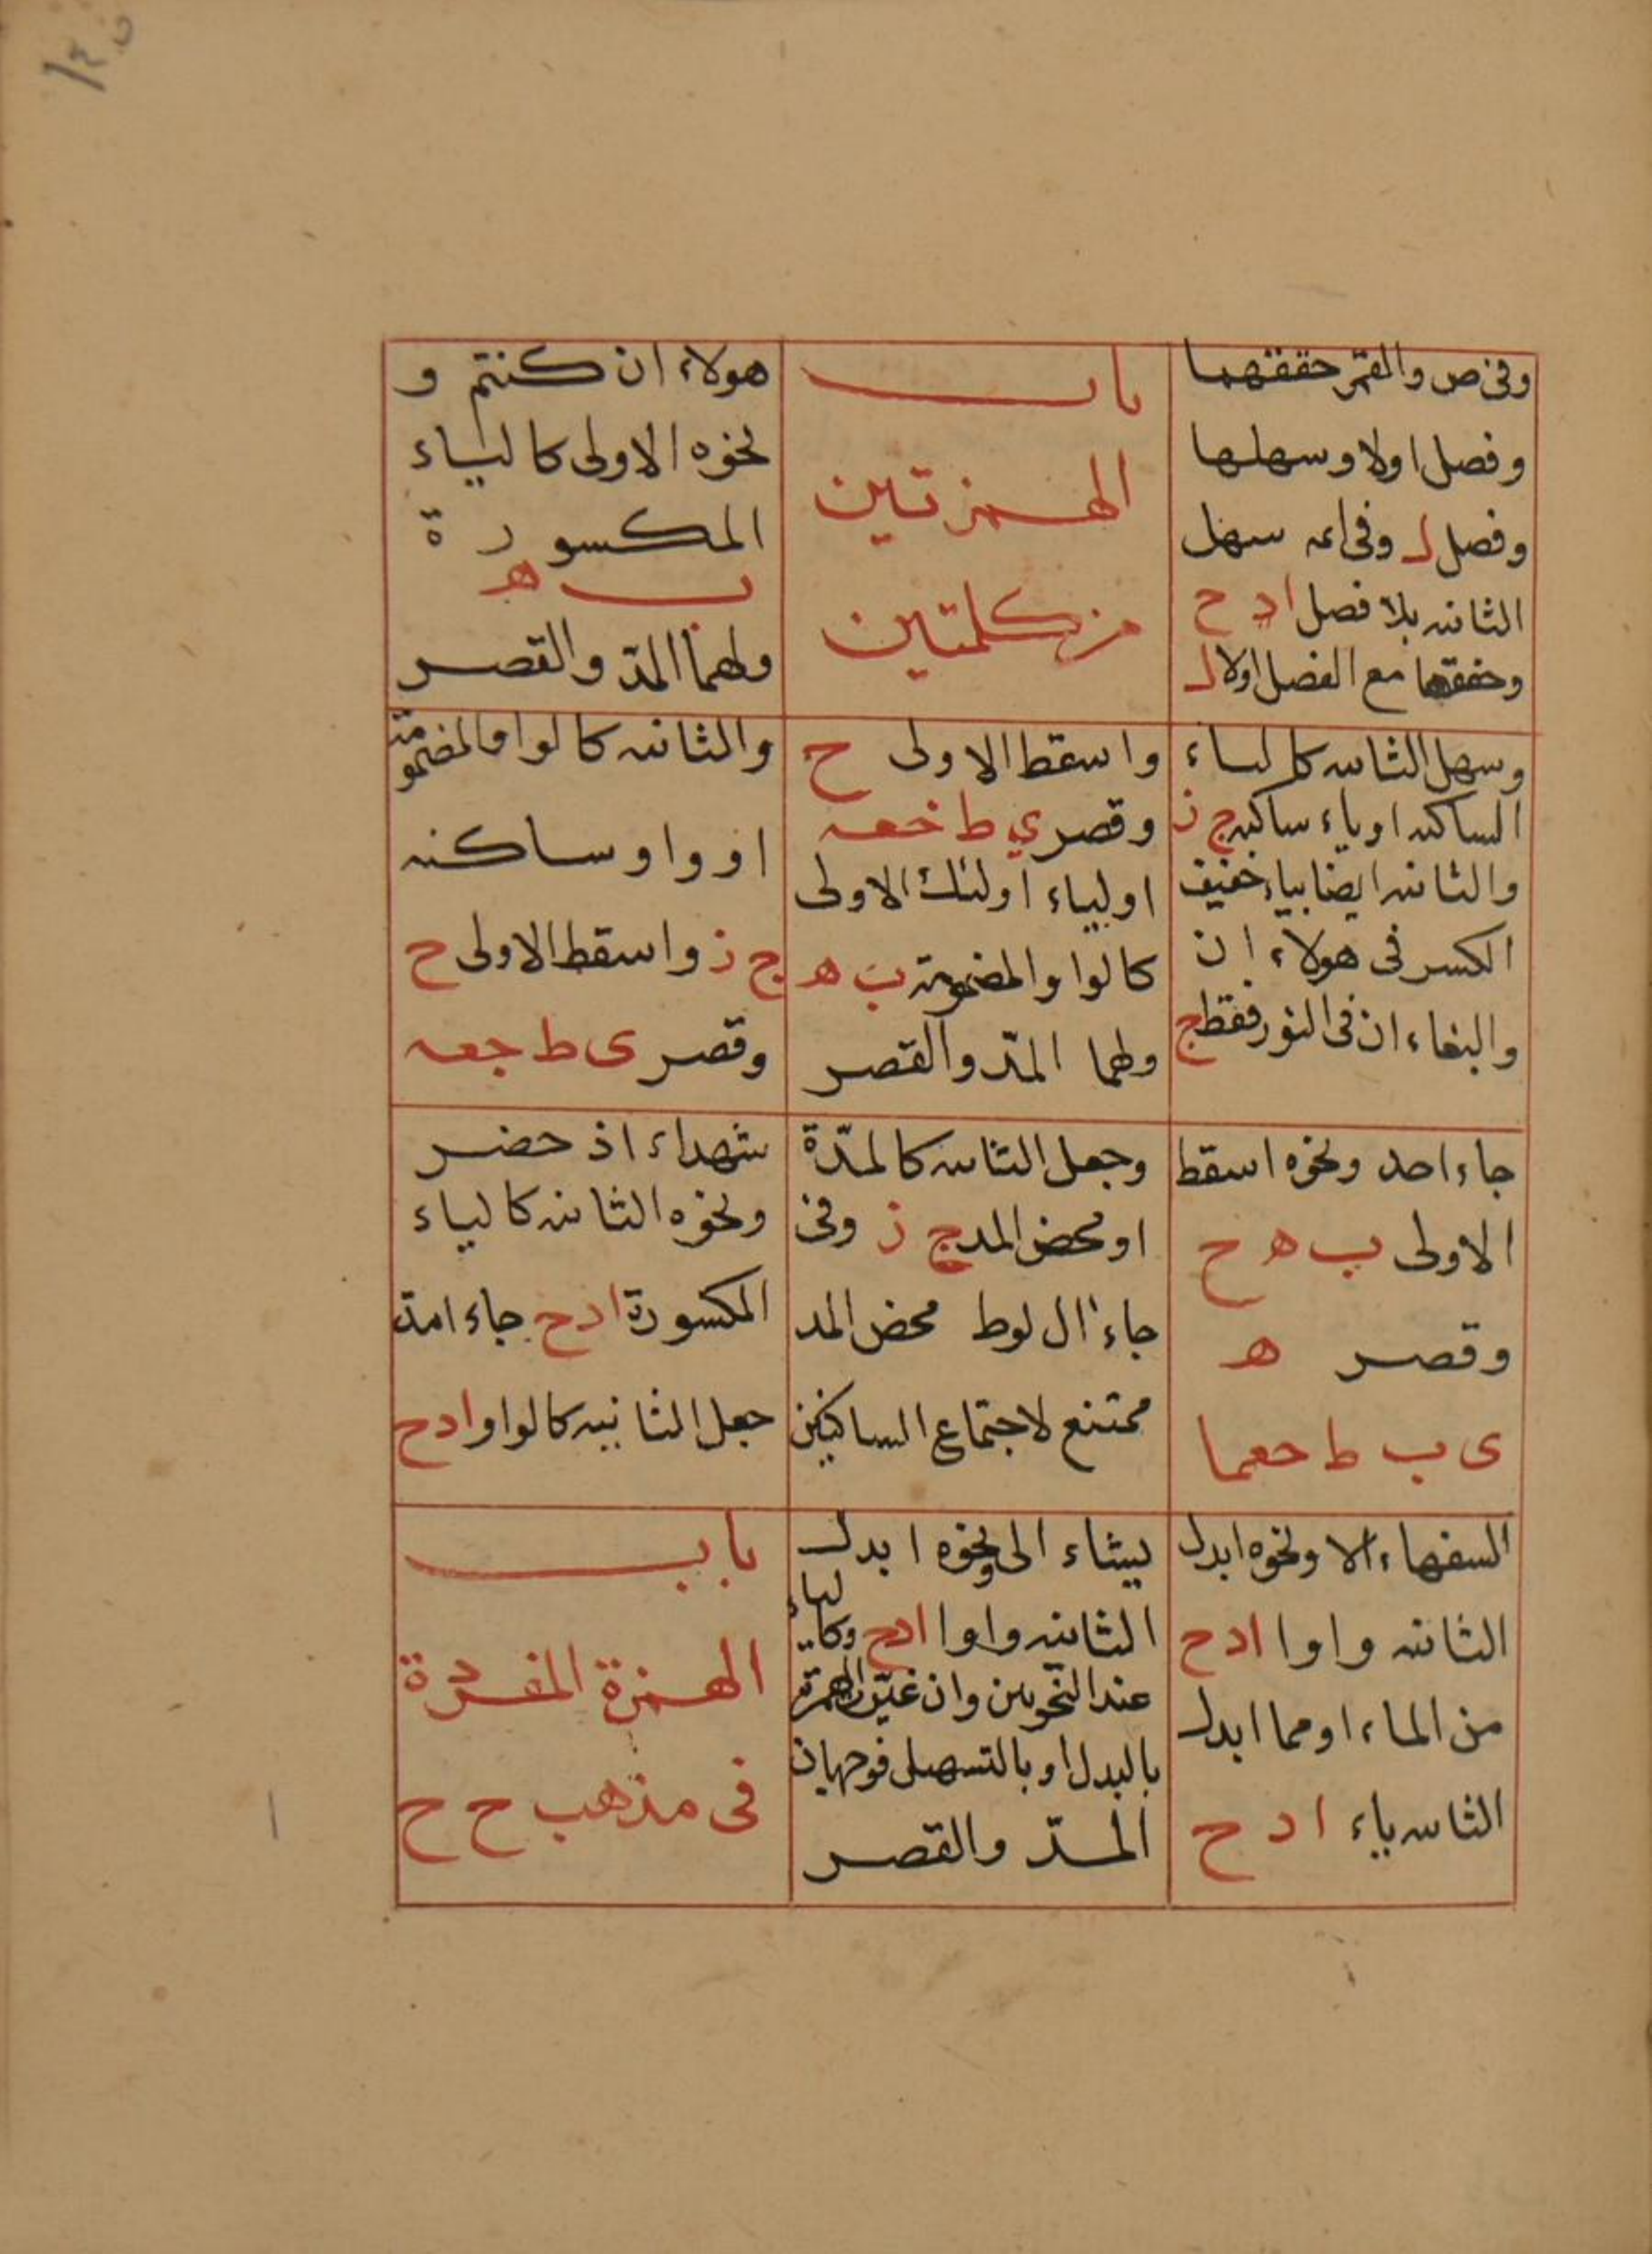 وفى ص والقمر حققهما
وفصل اولا وسهلها
وفصل ل وفى ائمه سهل
الثانيه بلا فصل ا د ح
وحققها مع الفصل اولا ل
باب
الهمزتين
من كلمتين
هولاء ان كنتم و
نحوه الاولى كالياء
المكسورة
ب ه
ولهما المدّ والقصر
وسهل الثانيه كالياء
الساكنه او ياء ساكنه ج ز
والثانيه ايضا بياء خفيف
الكسر فى هولاء ان
والبغاء ان فى النور فقط ج
واسقط الاولى ح
وقصر ى ط
اولياء اولئك الاولى
كالواو المضمومة ب ه
ولهما المدّ والقصر
والثانيه كالواو المضمومة
او واو ساكنه
ج ز واسقط الاولى ح
وقصر ى ط
جاء احد ونحوه اسقط
الاولى ب ه ح
وقصر ه
ى ب ط
وجعل الثانيه كالمدّة
او محض المد ج ز وفى
جاء ال لوط محض المد
ممتنع لاجتماع الساكنين
شهداء اذ حضر
ونحوه الثانيه كالياء
المكسورة ا د ح جاء امة
جعل الثانيه كالواو ا د ح
السفهاء الا ونحوه ابدل
الثانيه واوا ا د ح
من الماء او مما ابدل
الثانيه ياء ا د ح
يشاء الى ونحوه ابدل
الثانيه واوا ا د ح وكالياء
عند النحويين وان غيّر الهمزة
بالبدل او بالتسهيل فوجهان
المدّ والقصر
باب
الهمزة المفردة
فى مذهب ح ح